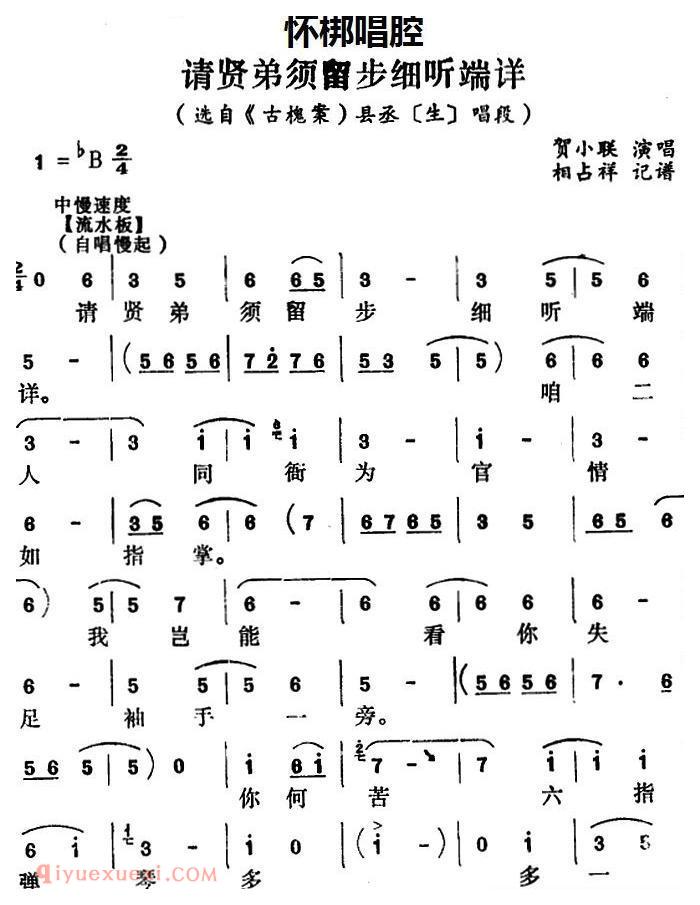 怀梆唱腔
请贤弟须留步细听端详
（选自《古槐案》县丞〔生〕唱段）
1 = ♭B 2/4
贺小联 演唱
相占祥 记谱
中慢速度
【流水板】
（自唱慢起）
2/4 0 6 | 3 5 | 6 6 5 | 3 - | 3 5 | 5 6
请 贤 弟 须 留 步 细 听 端
5 - | ( 5 6 5 6 | 7 2̇ 7 6 | 5 3 5 | 5 ) 6 | 6 6
详。 咱 二
3 - | 3 i | i i | 3 - | i - | 3 -
人 同 衙 为 官 情
6 - | 3 5 6 | 6 ( 7 | 6 7 6 5 | 3 5 | 5 6 5 6
如 指 掌。
6 ) 5 | 5 7 | 6 - | 6 6 | 6 6 | 6
我 岂 能 看 你 失
6 - | 5 5 | 5 6 | 5 - | ( 5 6 5 6 | 7 · 6
足 袖 手 一 旁。
5 6 5 | 5 ) 0 | i 6 i | 7 - | 7 i | i i
你 何 苦 六 指
6 i | 3 - | 0 0 | ( i - ) | 0 0 | 3 5
弹 琴 多 多 一
qiyuexueyi.com